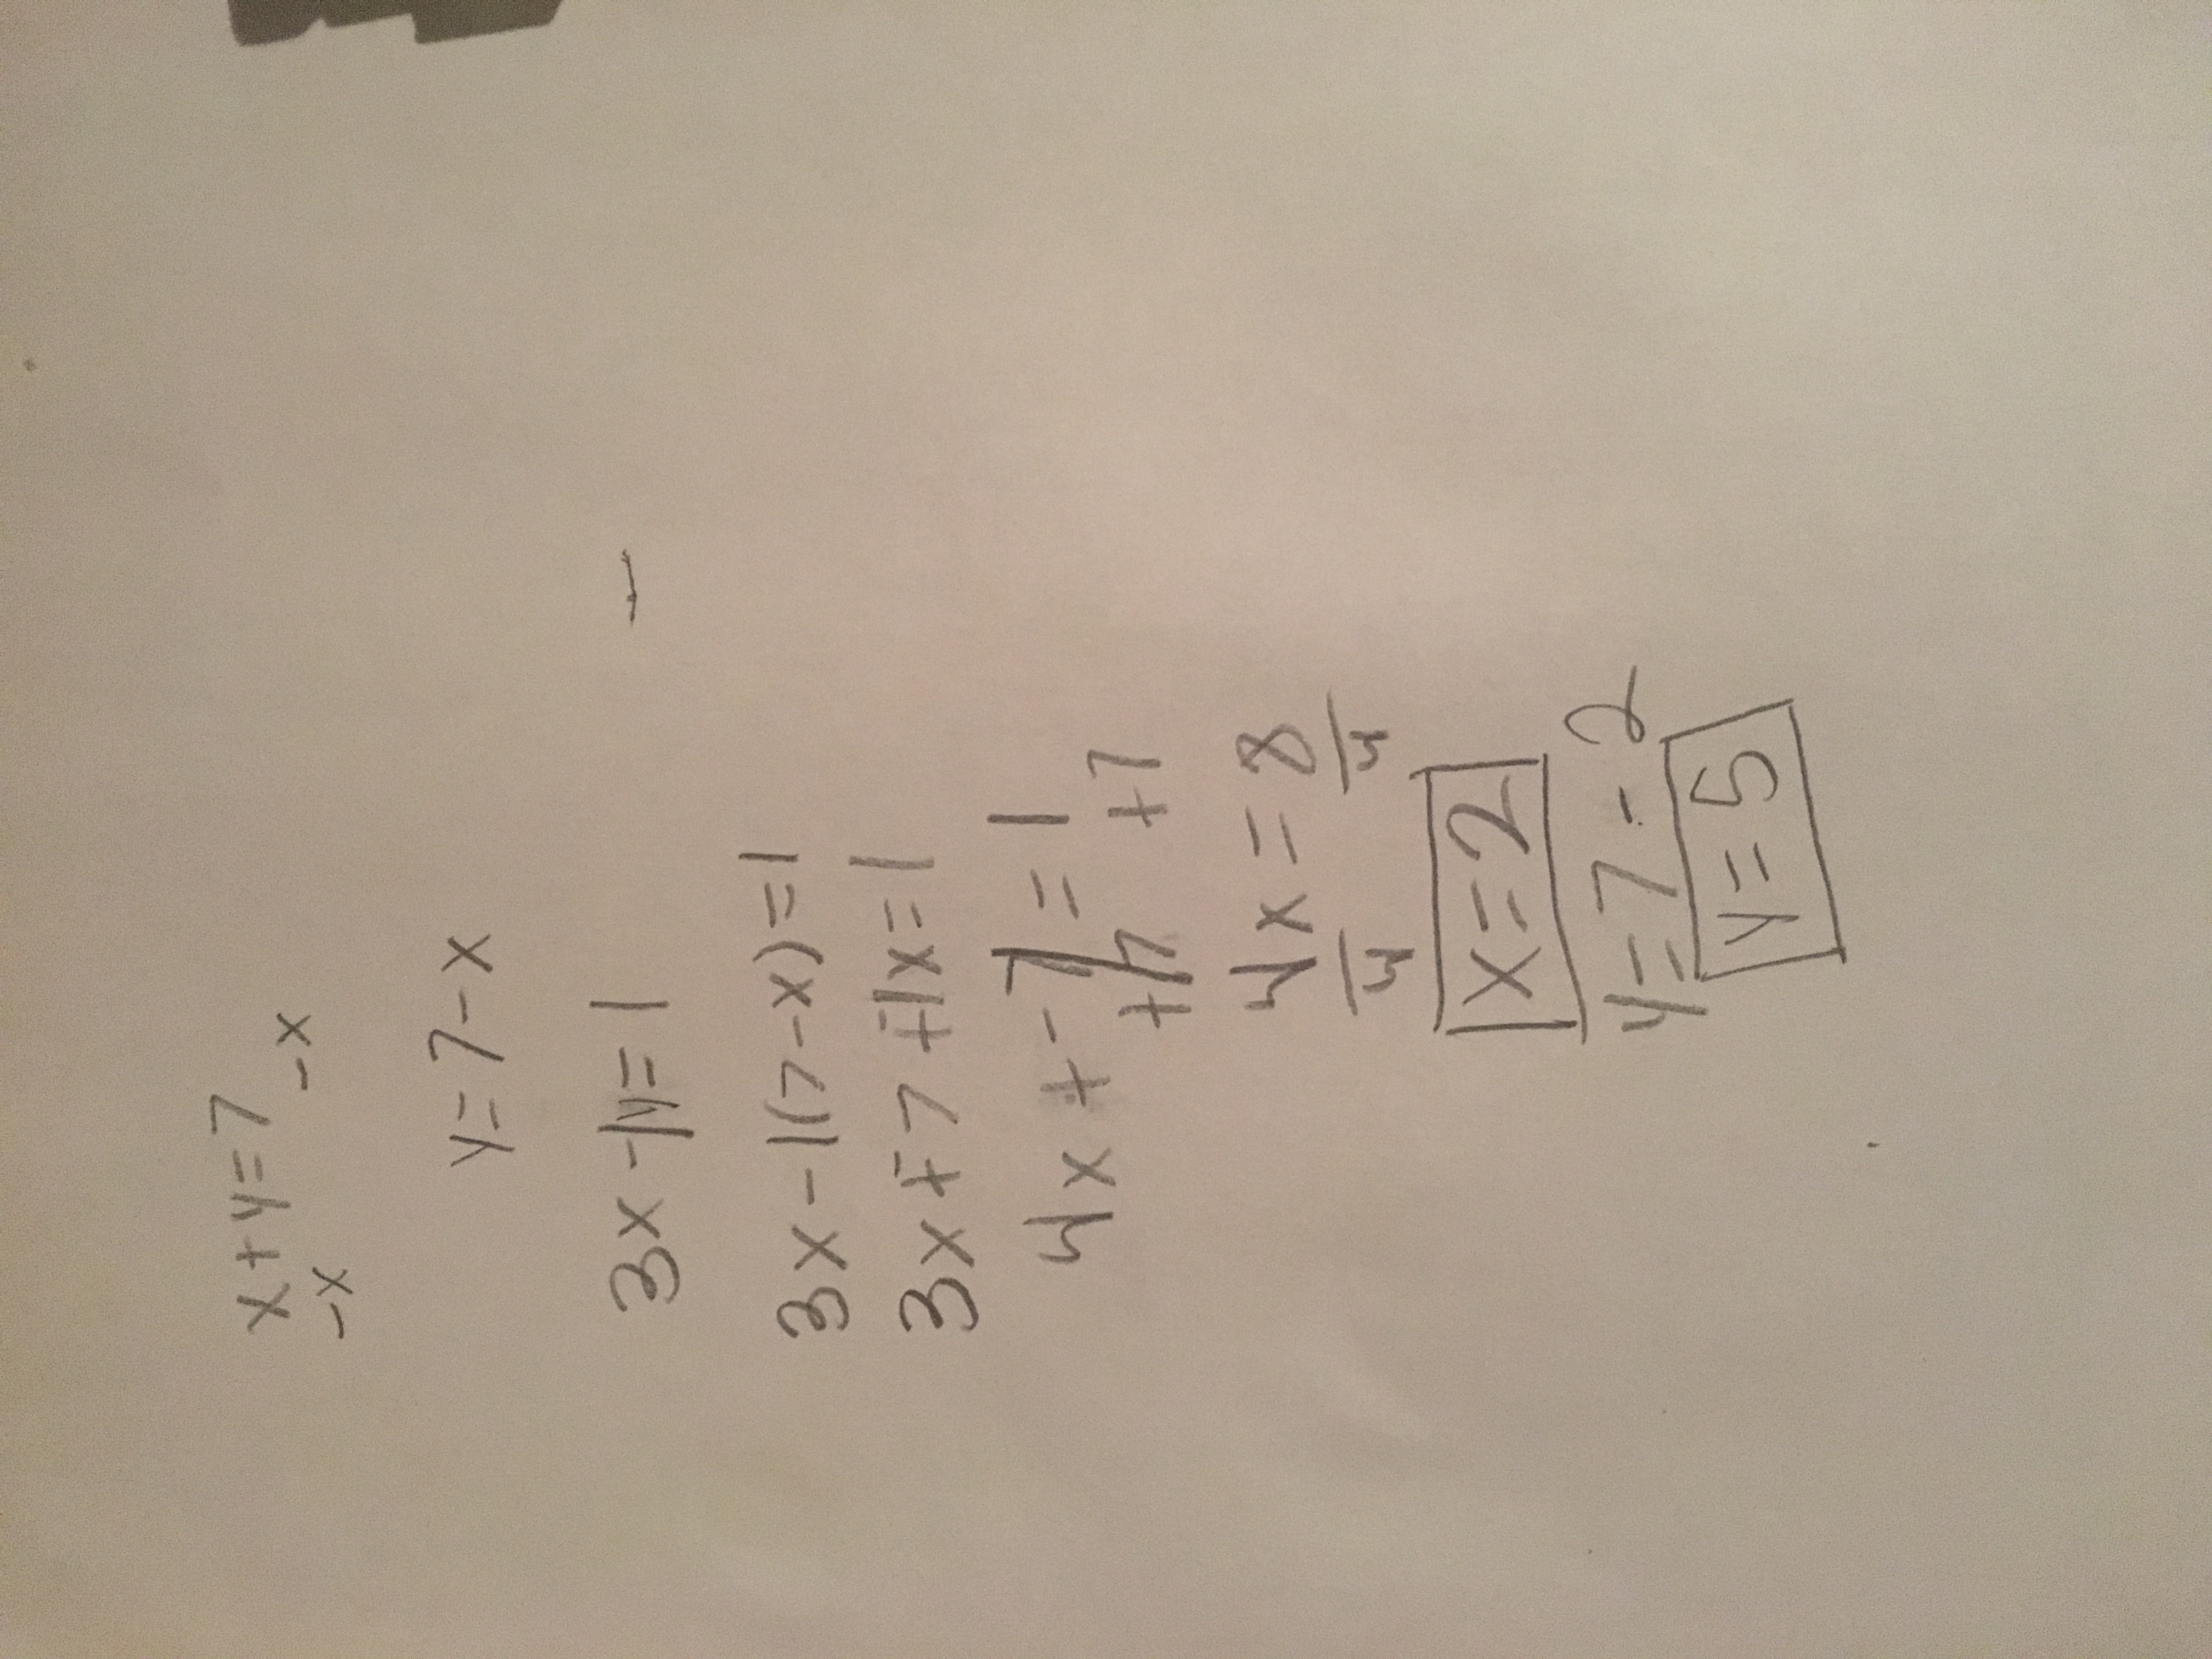 x + y = 7
-x -x
y = 7 - x
3x - 1y = 1
3x - 1(7 - x) = 1
3x + -7 + 1x = 1
4x + -7 = 1
+7 +7
4x = 8
4 4
x = 2
y = 7 - 2
y = 5